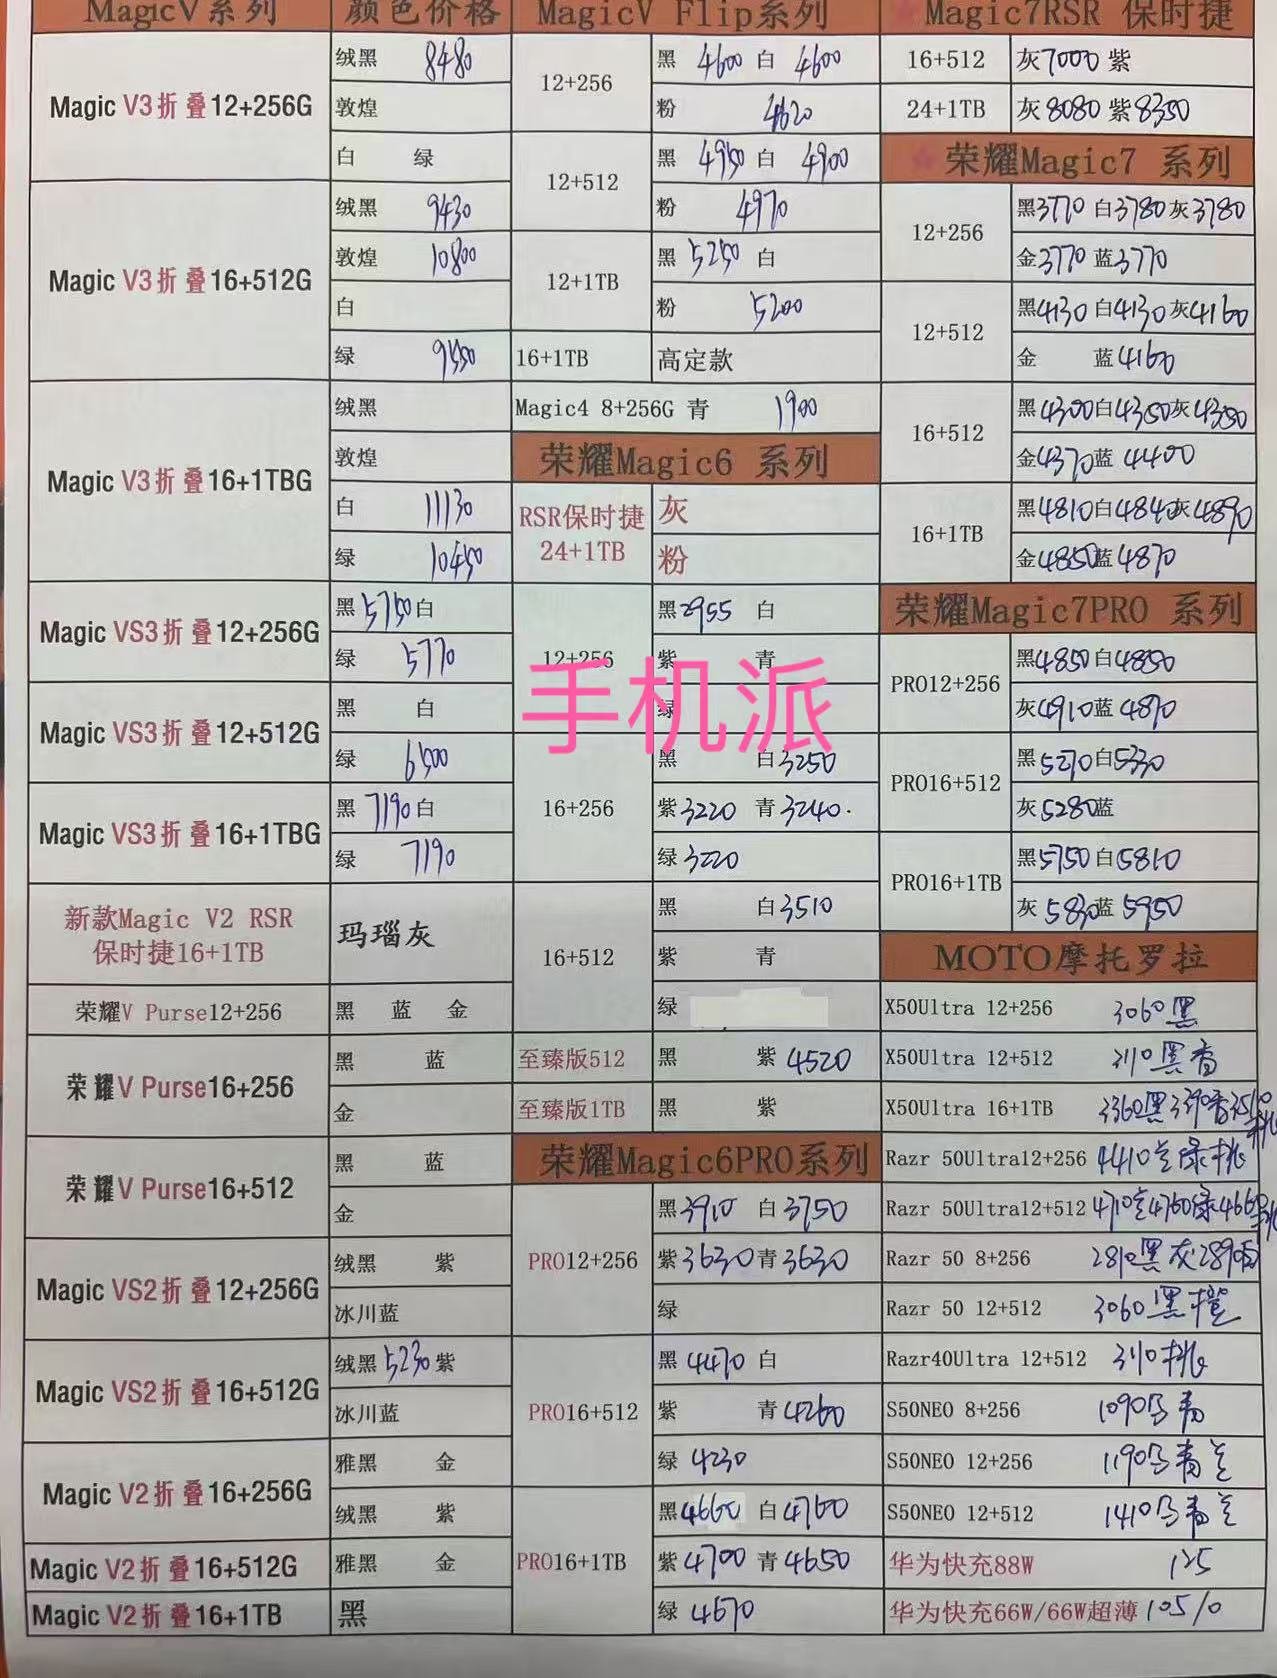 MagicV系列
颜色价格
Magic V3折叠12+256G
绒黑 8480
敦煌
白 绿
Magic V3折叠16+512G
绒黑 9430
敦煌 10800
白
绿
Magic V3折叠16+1TBG
绒黑
敦煌
白 11130
绿 10450
Magic VS3折叠12+256G
黑5750白
绿 5770
Magic VS3折叠12+512G
黑 白
绿 6500
Magic VS3折叠16+1TBG
黑7190白
绿 7190
新款Magic V2 RSR
保时捷16+1TB
玛瑙灰
荣耀V Purse12+256
黑 蓝 金
荣耀V Purse16+256
黑 蓝
金
荣耀V Purse16+512
黑 蓝
金
Magic VS2折叠12+256G
绒黑 紫
冰川蓝
Magic VS2折叠16+512G
绒黑5230紫
冰川蓝
Magic V2折叠16+256G
雅黑 金
绒黑 紫
Magic V2折叠16+512G
雅黑 金
Magic V2折叠16+1TB
黑
MagicV Flip系列
12+256
黑 4600 白 4600
粉 4620
12+512
黑 4950 白 4900
粉 4970
12+1TB
黑 5250 白
粉 5200
16+1TB
高定款
Magic4 8+256G 青 1900
荣耀Magic6 系列
RSR保时捷
24+1TB
灰
粉
12+256
黑2955 白
紫 青
绿
手机派
16+256
黑 白3250
紫3220 青3240.
绿3220
16+512
黑 白3510
紫 青
绿
至臻版512
黑 紫 4520
至臻版1TB
黑 紫
荣耀Magic6PRO系列
PRO12+256
黑3910 白3750
紫3630青3630
绿
PRO16+512
黑 4470 白
紫 青4260
绿 4230
PRO16+1TB
黑4660 白4760
紫4700 青4650
绿 4670
Magic7RSR 保时捷
16+512
灰7000 紫
24+1TB
灰8080 紫8350
荣耀Magic7 系列
12+256
黑3770 白3780灰3780
金3770 蓝3770
12+512
黑4130 白4130灰4160
金 蓝4160
16+512
黑4300白4350灰4350
金4370蓝 4400
16+1TB
黑4810白4840灰4890
金4850蓝4870
荣耀Magic7PRO 系列
PRO12+256
黑4850白4850
灰4910蓝 4870
PRO16+512
黑5270白5330
灰5280蓝
PRO16+1TB
黑5750白5810
灰 5830蓝 5950
MOTO摩托罗拉
X50Ultra 12+256 3060黑
X50Ultra 12+512 3110黑杳
X50Ultra 16+1TB 3360黑
Razr 50Ultra12+256 4410兰绿桃
Razr 50Ultra12+512 4710兰4760绿
Razr 50 8+256 2810黑灰
Razr 50 12+512 3060黑橙
Razr40Ultra 12+512 3110桃
S50NEO 8+256 1090乌青
S50NEO 12+256 1190乌青兰
S50NEO 12+512 1410乌青兰
华为快充88W 125
华为快充66W/66W超薄 105/0